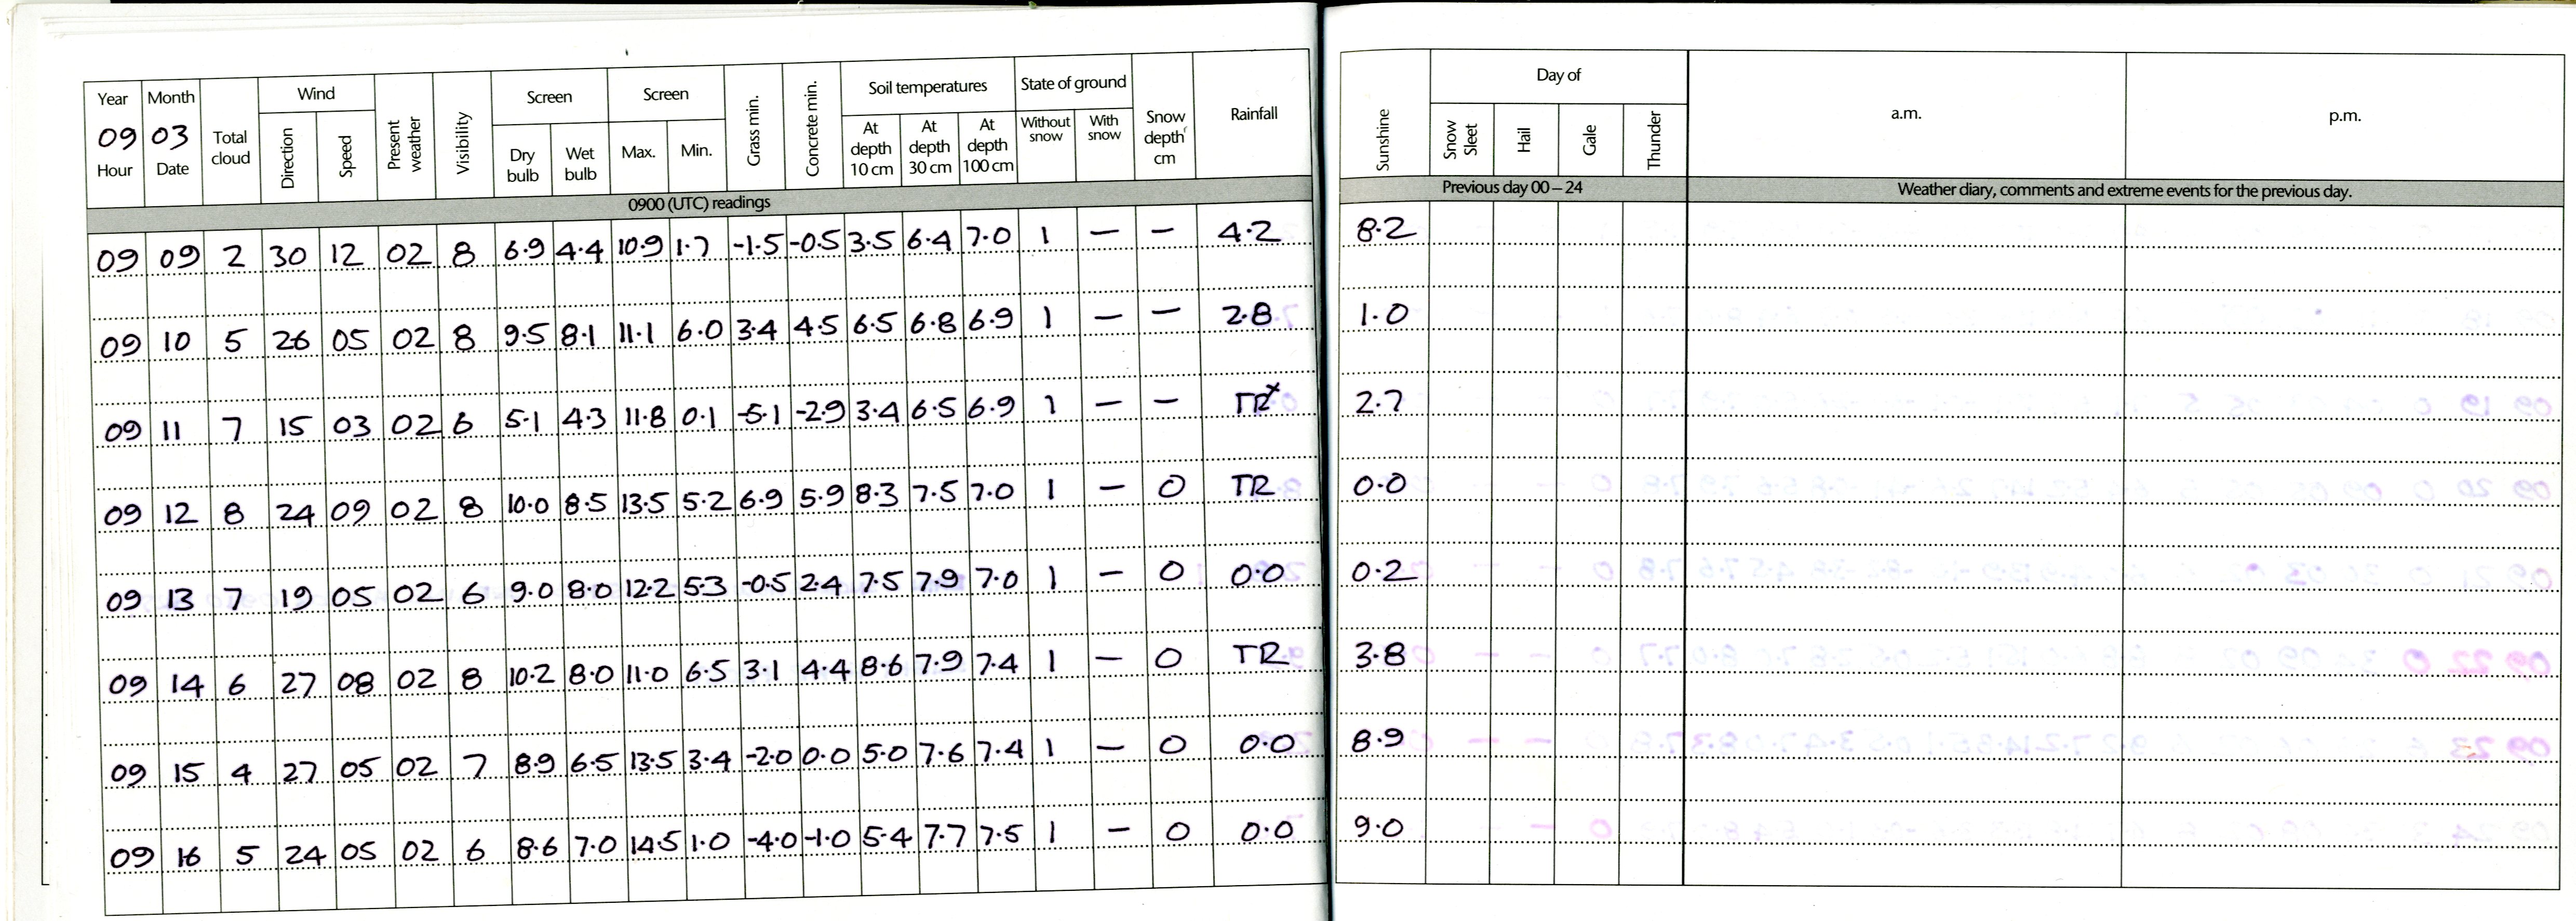 Year Month Total cloud Wind Present weather Visibility Screen Screen Grass min. Concrete min. Soil temperatures State of ground Snow depth cm Rainfall Sunshine Day of a.m. p.m.
09 03 Direction Speed Dry bulb Wet bulb Max. Min. At depth 10 cm At depth 30 cm At depth 100 cm Without snow With snow Snow Sleet Hail Gale Thunder
Hour Date
0900 (UTC) readings Previous day 00 – 24 Weather diary, comments and extreme events for the previous day.
09 09 2 30 12 02 8 6.9 4.4 10.9 1.7 -1.5 -0.5 3.5 6.4 7.0 1 — — 4.2 8.2
09 10 5 26 05 02 8 9.5 8.1 11.1 6.0 3.4 4.5 6.5 6.8 6.9 1 — — 2.8 1.0
09 11 7 15 03 02 6 5.1 4.3 11.8 0.1 -5.1 -2.9 3.4 6.5 6.9 1 — — TR x 2.7
09 12 8 24 09 02 8 10.0 8.5 13.5 5.2 6.9 5.9 8.3 7.5 7.0 1 — 0 TR 0.0
09 13 7 19 05 02 6 9.0 8.0 12.2 5.3 -0.5 2.4 7.5 7.9 7.0 1 — 0 0.0 0.2
09 14 6 27 08 02 8 10.2 8.0 11.0 6.5 3.1 4.4 8.6 7.9 7.4 1 — 0 TR 3.8
09 15 4 27 05 02 7 8.9 6.5 13.5 3.4 -2.0 0.0 5.0 7.6 7.4 1 — 0 0.0 8.9
09 16 5 24 05 02 6 8.6 7.0 14.5 1.0 -4.0 -1.0 5.4 7.7 7.5 1 — 0 0.0 9.0